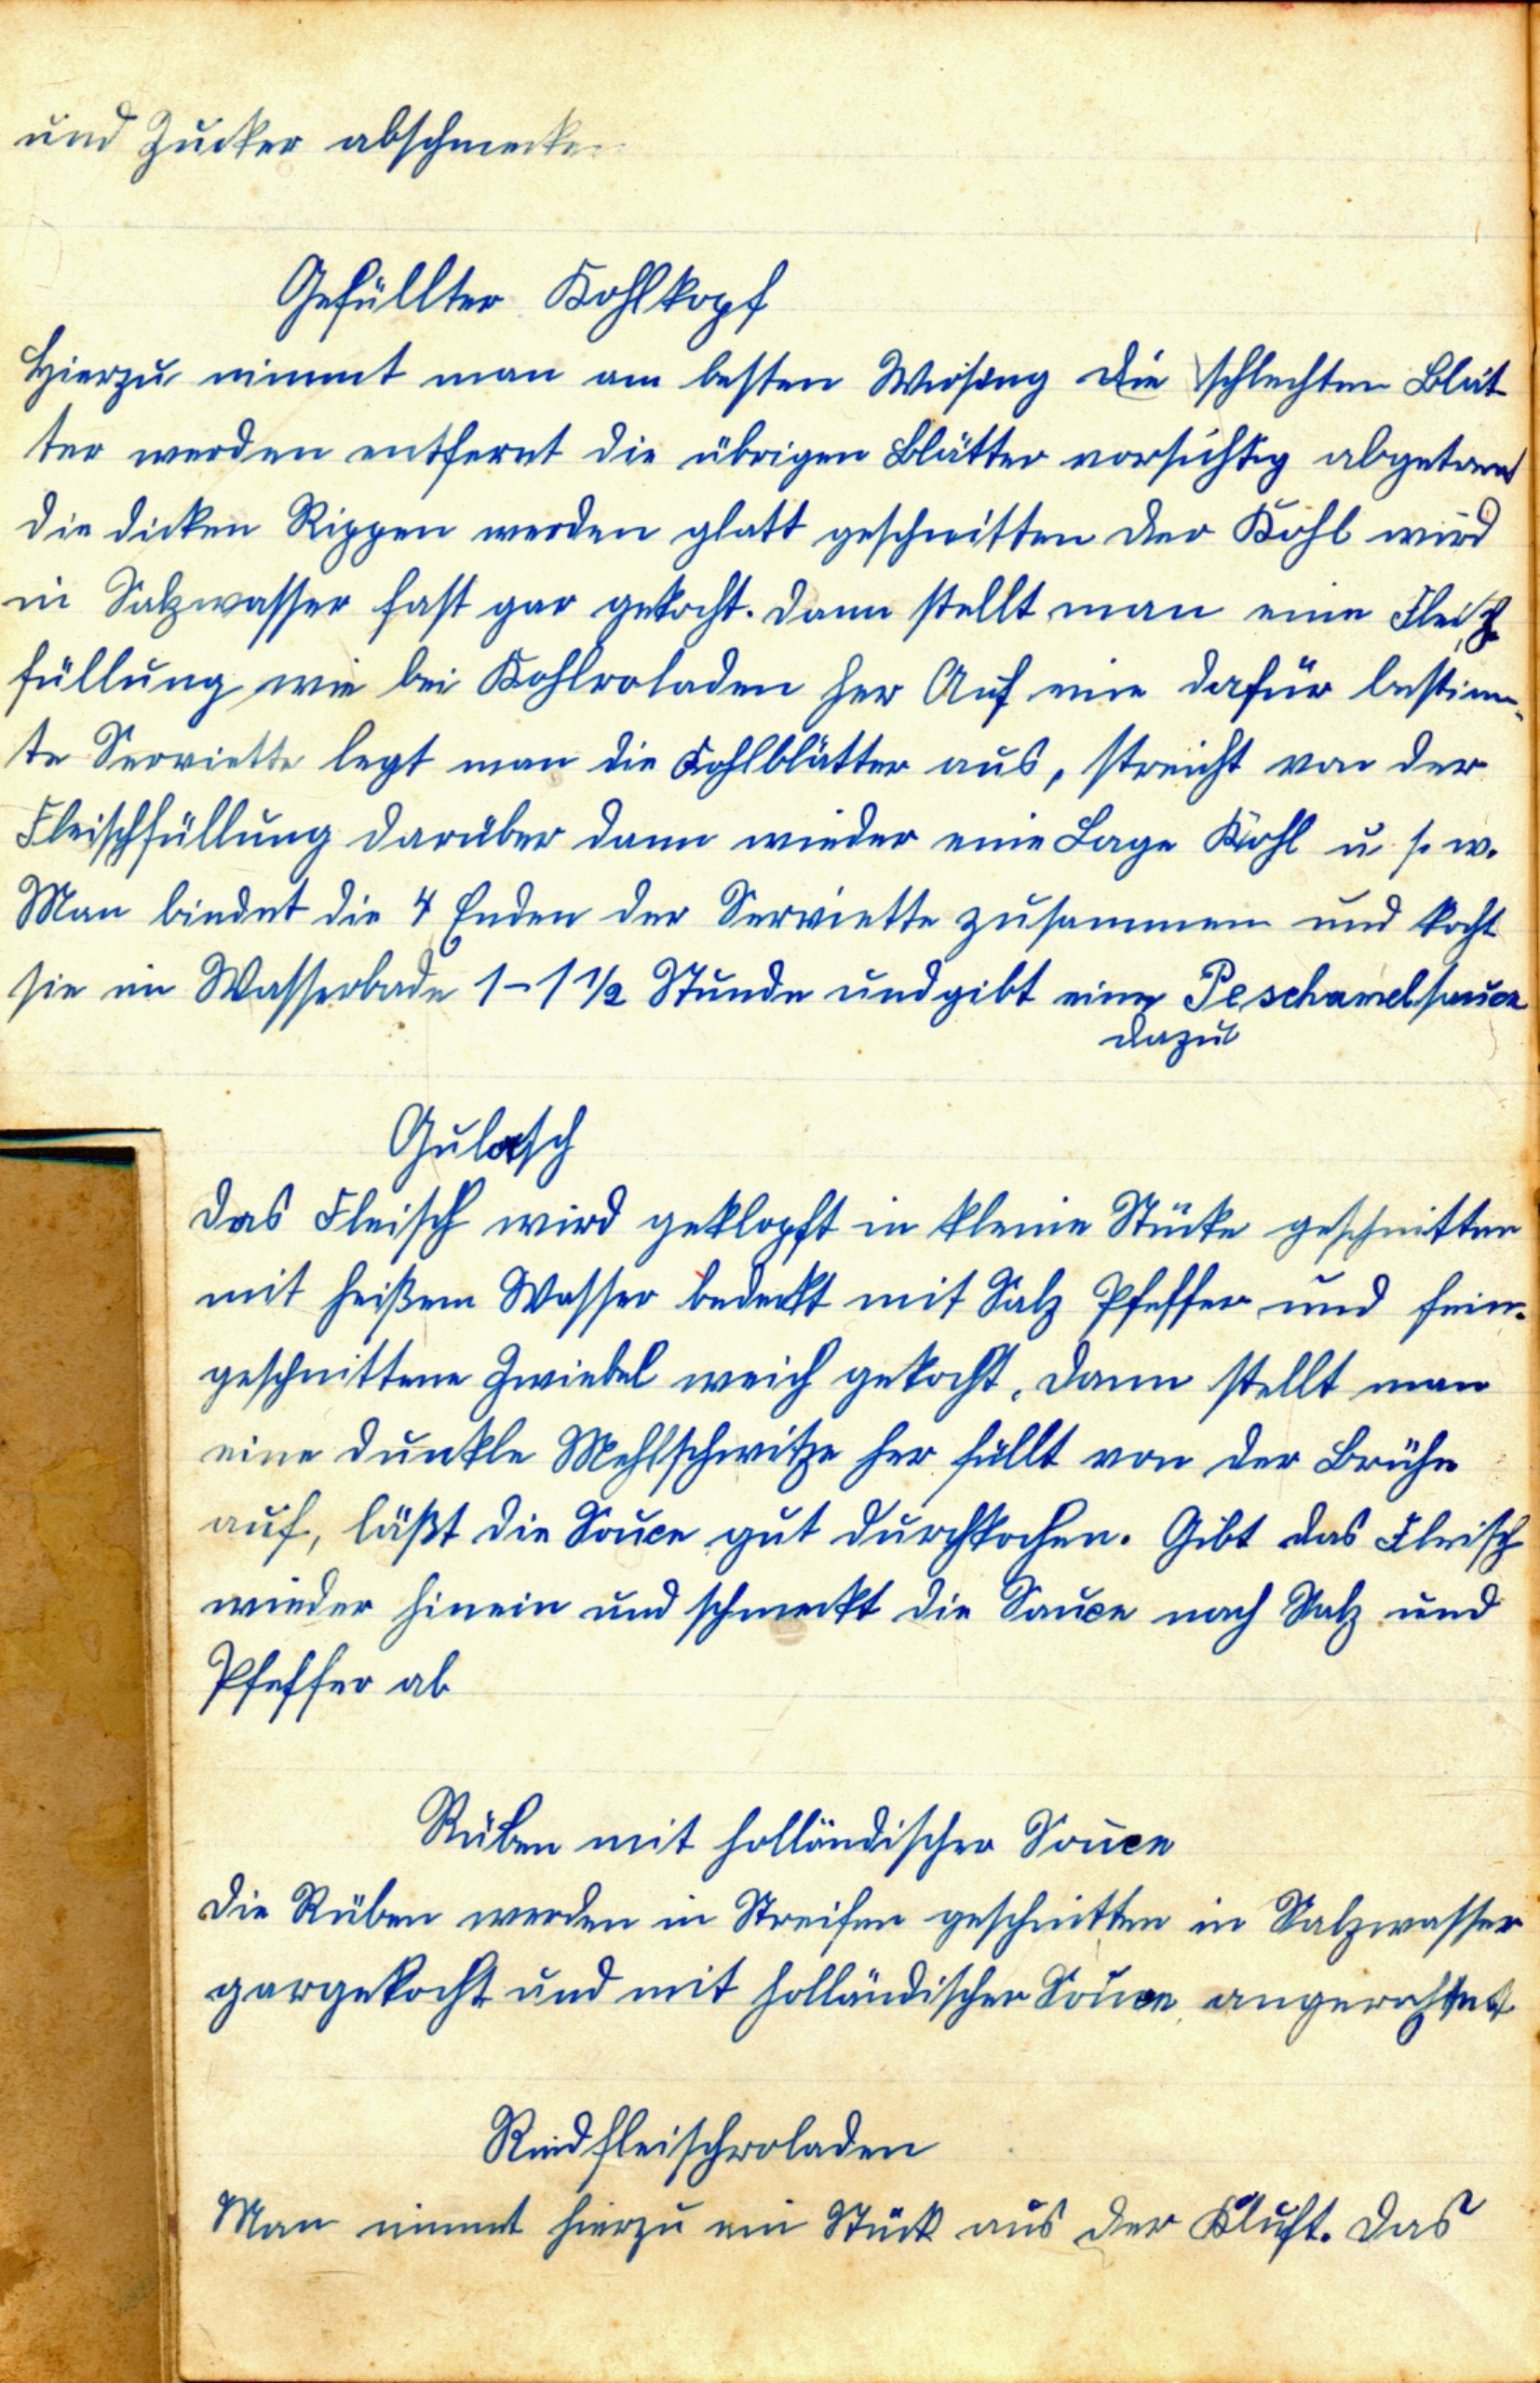 und Zucker abschmecken
Gefüllter Kohlkopf
Hierzu nimmt man am besten Wirsing die schlechten Blät
ter werden entfernt die übrigen Blätter vorsichtig abgetrennt
die dicken Rippen werden glatt geschnitten der Kohl wird
in Salzwasser fast gar gekocht. Dann stellt man eine Fleisch
füllung wie bei Kohlroladen her Auf eine dafür bestimm-
te Serviette legt man die Kohlblätter aus, streicht von der
Fleischfüllung darüber dann wieder eine Lage Kohl u. s. w.
Man bindet die 4 Enden der Serviette zusammen und kocht
sie im Wasserbade 1-1 1/2 Stunde und gibt eine Peschamelsauce
dazu
Gulasch
Das Fleisch wird geklopft in kleine Stücke geschnitten
mit heißem Wasser bedeckt mit Salz Pfeffer und fein-
geschnittene Zwiebel weich gekocht. Dann stellt man
eine dunkle Mehlschwitze her füllt von der Brühe
auf, läßt die Sauce gut durchkochen. Gibt das Fleisch
wieder hinein und schmeckt die Sauce nach Salz und
Pfeffer ab
Rüben mit holländischer Sauce
Die Rüben werden in Streifen geschnitten in Salzwasser
gargekocht und mit holländischer Sauce angerichtet
Rindfleischroladen
Man nimmt hierzu ein Stück aus der Kluft. Das